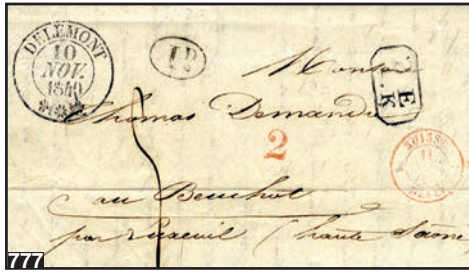 DELEMONT
10
NOV.
1840
I.D.
Monsieur
L.E
K
Thomas Demandre
2
SUISSE
au Beuchot
par Luxeuil (haute Saone
777